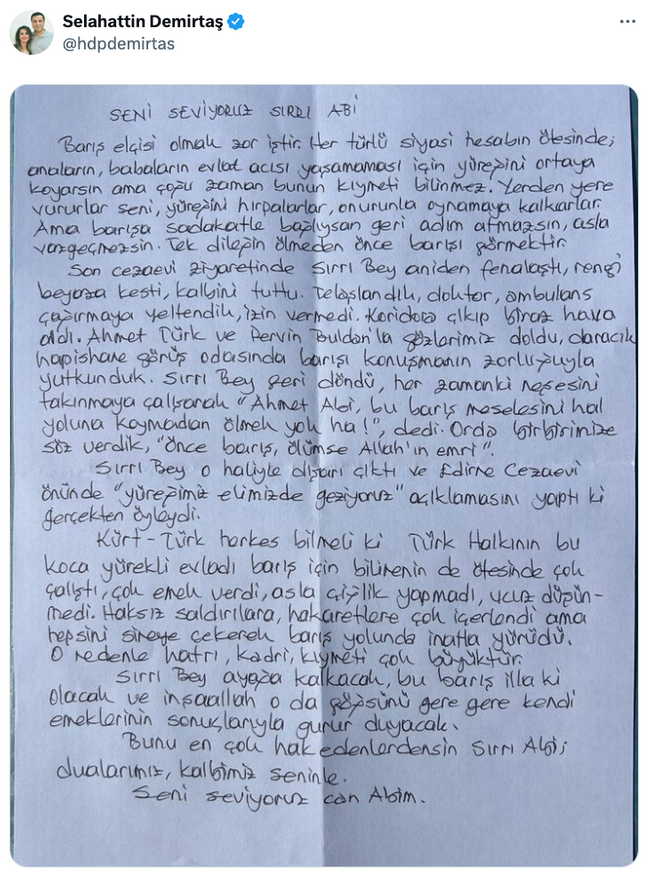 Selahattin Demirtaş
@hdpdemirtas
SENİ SEVİYORUZ SIRRI ABİ
Barış elçisi olmak zor iştir. Her türlü siyasi hesabın ötesinde;
anaların, babaların evlat acısı yaşamaması için yüreğini ortaya
koyarsın ama çoğu zaman bunun kıymeti bilinmez. Yerden yere
vururlar seni, yüreğini hırpalarlar, onurunla oynamaya kalkarlar.
Ama barışa sadakatle bağlıysan geri adım atmazsın, asla
vazgeçmezsin. Tek dileğin ölmeden önce barışı görmektir.
Son cezaevi ziyaretinde Sırrı Bey aniden fenalaştı, rengi
beyaza kesti, kalbini tuttu. Telaşlandık, doktor, ambulans
çağırmaya yeltendik, izin vermedi. Koridora çıkıp biraz hava
aldı. Ahmet Türk ve Pervin Buldan'la gözlerimiz doldu, daracık
hapishane görüş odasında barışı konuşmanın zorluğuyla
yutkunduk. Sırrı Bey geri döndü, her zamanki neşesini
takınmaya çalışarak "Ahmet Abi, bu barış meselesini hal
yoluna koymadan ölmek yok ha!", dedi. Orda birbirimize
söz verdik, "önce barış, ölümse Allah'ın emri".
Sırrı Bey o haliyle dışarı çıktı ve Edirne Cezaevi
önünde "yüreğimiz elimizde geziyoruz" açıklamasını yaptı ki
gerçekten öyleydi.
Kürt-Türk herkes bilmeli ki Türk Halkının bu
koca yürekli evladı barış için bilinenin de ötesinde çok
çalıştı, çok emek verdi, asla çiğlik yapmadı, ucuz düşün-
medi. Haksız saldırılara, hakaretlere çok içerlendi ama
hepsini sineye çekerek barış yolunda inatla yürüdü.
O nedenle hatrı, kadri, kıymeti çok büyüktür.
Sırrı Bey ayağa kalkacak, bu barış illa ki
olacak ve inşaallah o da göğsünü gere gere kendi
emeklerinin sonuçlarıyla gurur duyacak.
Bunu en çok hak edenlerdensin Sırrı Abi;
dualarımız, kalbimiz seninle.
Seni seviyoruz can Abim.